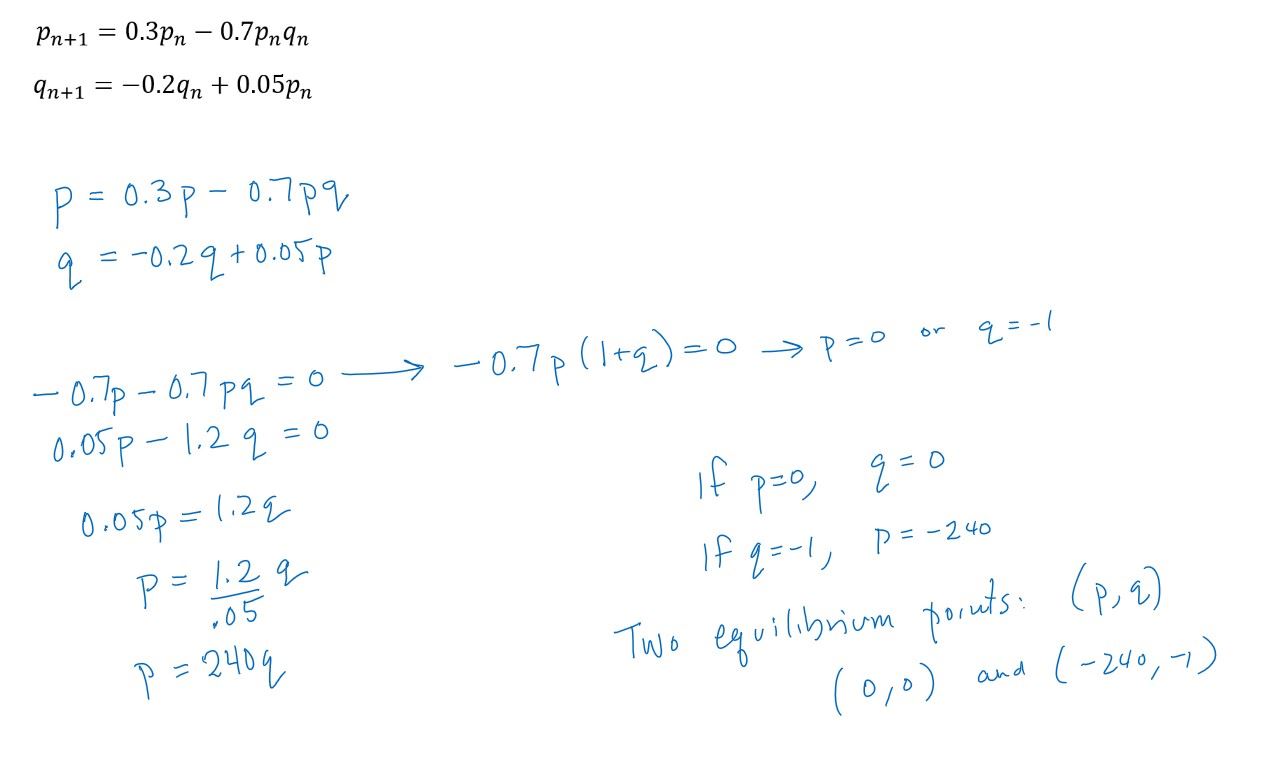 pₙ₊₁ = 0.3pₙ − 0.7pₙqₙ
qₙ₊₁ = −0.2qₙ + 0.05pₙ
p = 0.3p − 0.7pq
q = −0.2q + 0.05p
−0.7p − 0.7pq = 0 ⟶ −0.7p(1+q) = 0 → p=0 or q=−1
0.05p − 1.2q = 0
0.05p = 1.2q
p = 1.2/.05 q
p = 240q
If p=0, q=0
If q=−1, p=−240
Two equilibrium points: (p,q)
(0,0) and (−240,−1)